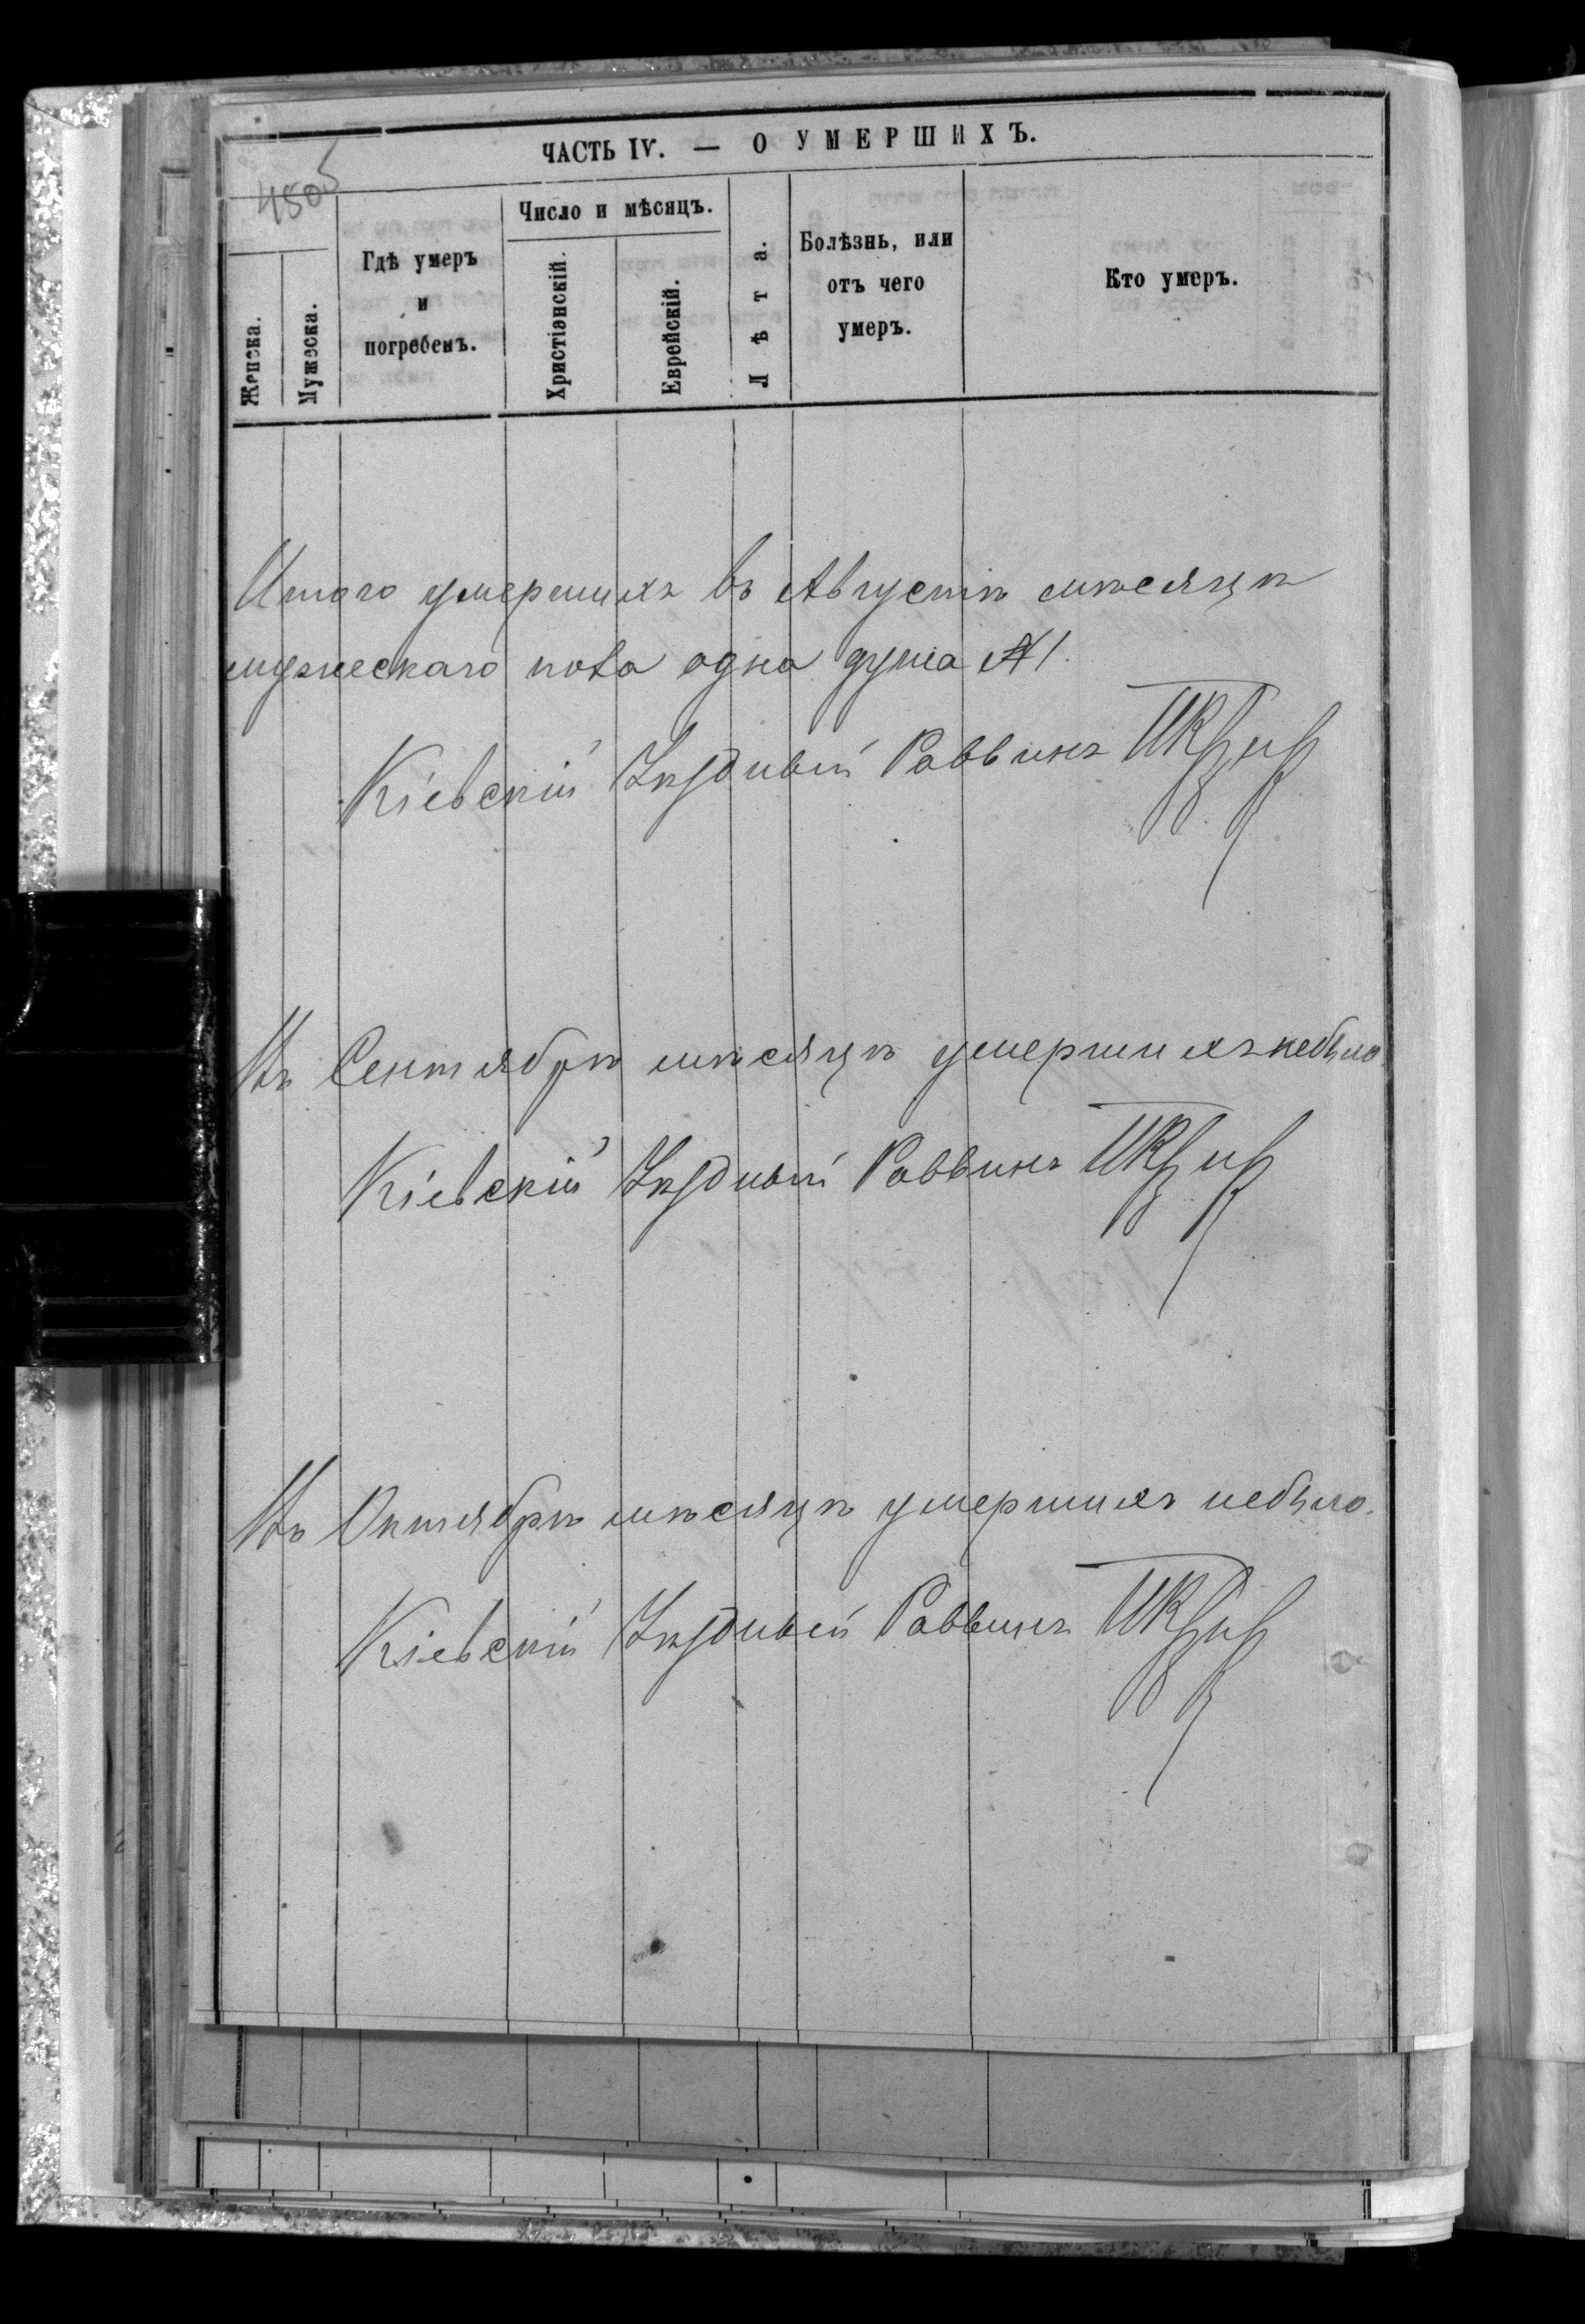 ЧАСТЬ IV. — О УМЕРШИХЪ.
4505
Женска.
Мужеска.
Гдѣ умеръ
и
погребенъ.
Число и мѣсяцъ.
Христіанскій.
Еврейскій.
Лѣта.
Болѣзнь, или
отъ чего
умеръ.
Кто умеръ.
Итого умершихъ въ Августѣ мѣсяцѣ
мужескаго пола одна душа №1.
Кіевскій Уѣздный Раввинъ
Въ Сентябрѣ мѣсяцѣ умершихъ небыло
Кіевскій Уѣздный Раввинъ
Въ Октябрѣ мѣсяцѣ умершихъ небыло.
Кіевскій Уѣздный Раввинъ